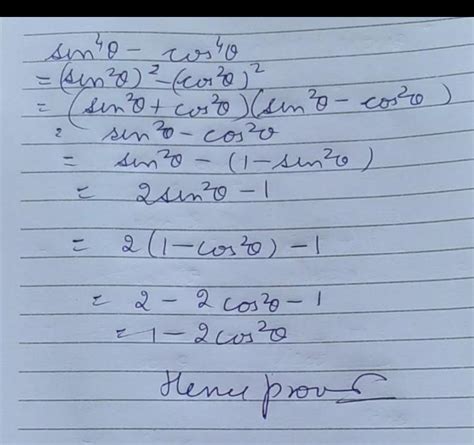 sin⁴θ - cos⁴θ
= (sin²θ)² - (cos²θ)²
= (sin²θ + cos²θ)(sin²θ - cos²θ)
= sin²θ - cos²θ
= sin²θ - (1 - sin²θ)
= 2sin²θ - 1
= 2(1 - cos²θ) - 1
= 2 - 2cos²θ - 1
= 1 - 2cos²θ
Hence proved